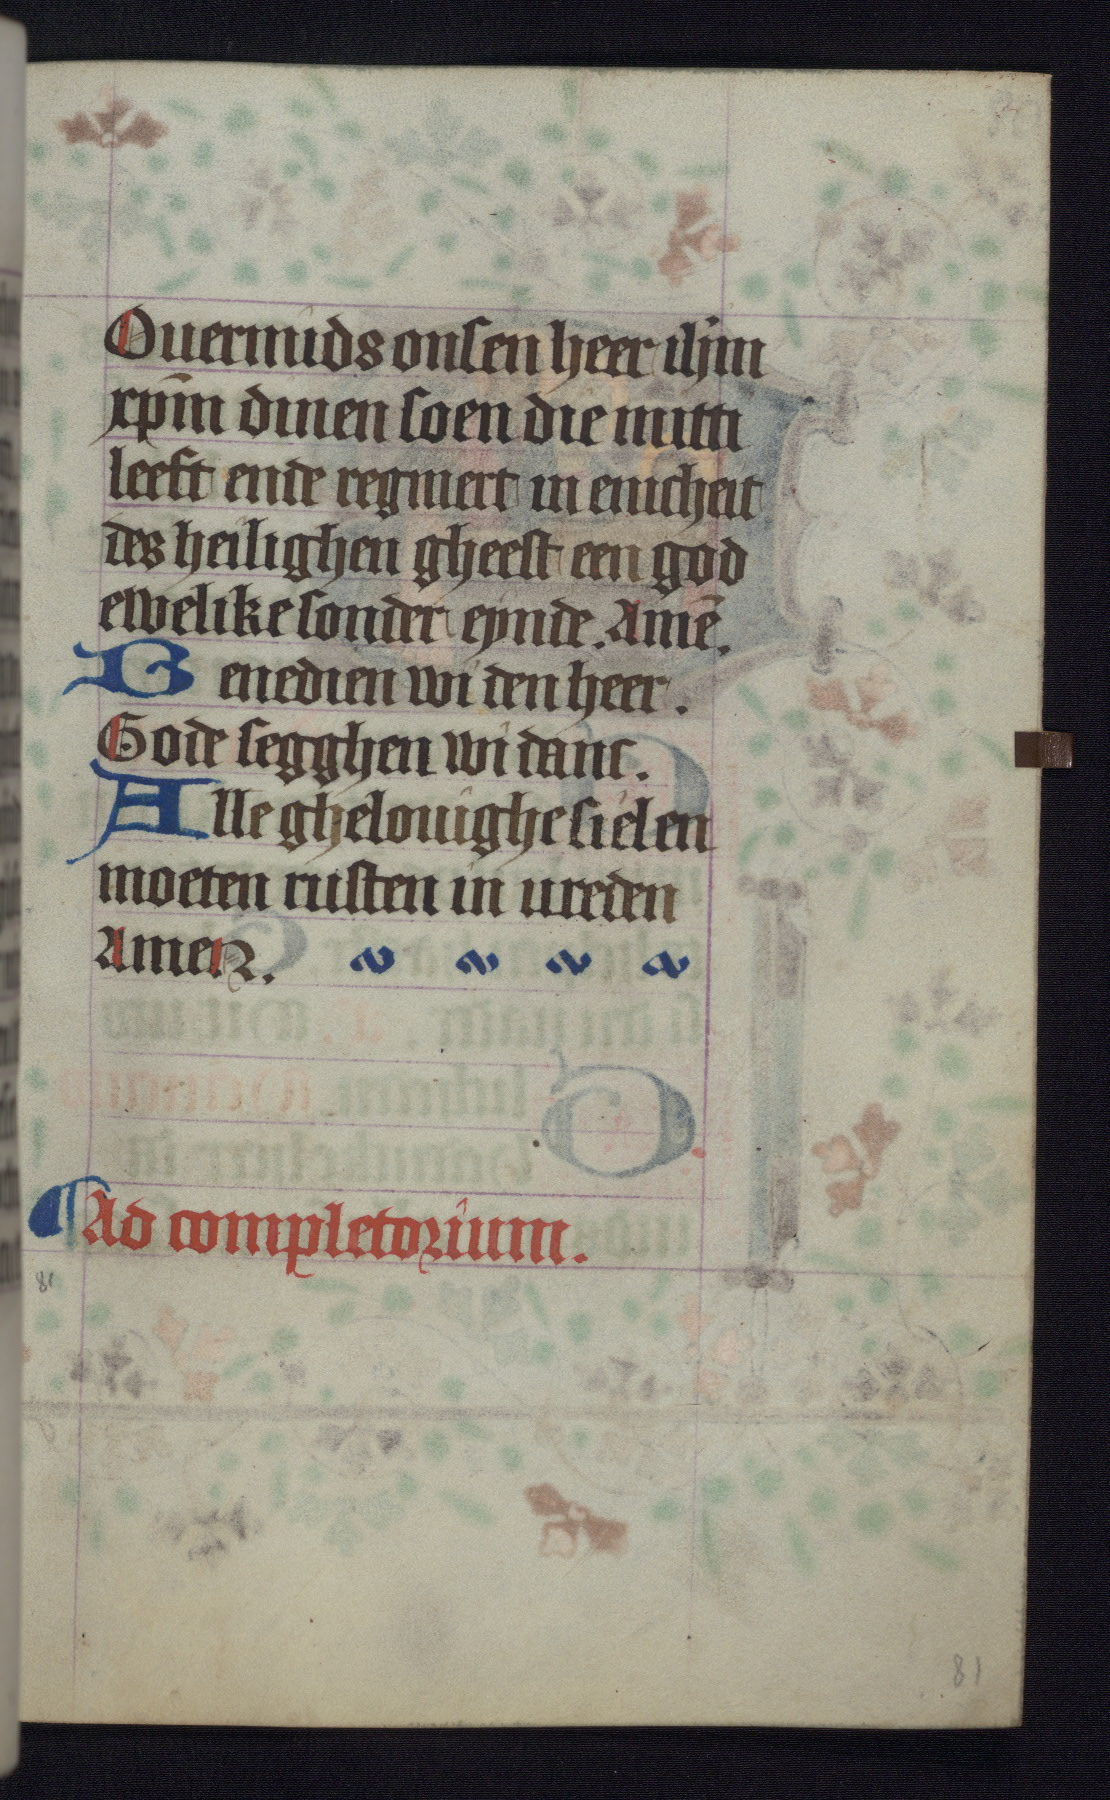 Ouermids onsen heer ihm̄
xpm̄ dinen soen die mitti
leeft ende regniert in enicheit
des heilighen gheest een god
ewelike sonder eynde. Amē.
Benedien wi den heer.
Gode segghen wi danc.
Alle ghelouighe sielen
moeten rusten in ureden
Amen.
Ad completorium.
81
81